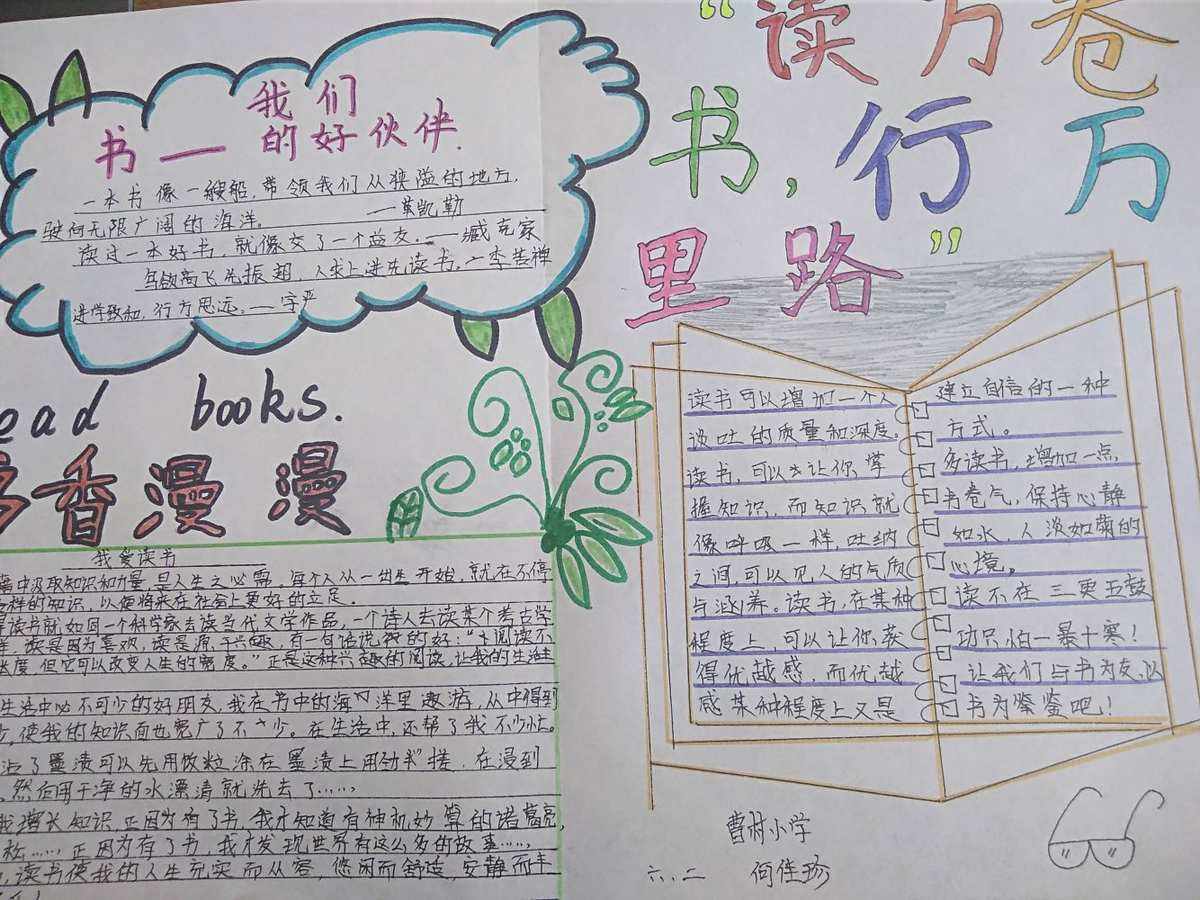 我们
书——的好伙伴.
一本书像一艘船,带领我们从狭隘的地方,
驶向无限广阔的海洋。 ——英凯勒
读过一本好书,就像交了一个益友。——臧克家
鸟欲高飞先振翅,人求上进先读书。——李苦禅
进学致和,行方思远。——字严
ead books.
香漫漫
我爱读书
中汲取知识和力量,是人生之必需,每个人从一出生开始,就在不停
样的知识,以便将来在社会上更好的立足。
读书就如同一个科学家去读当代文学作品,一个诗人去读某个考古学
读是因为喜欢,读是源于兴趣,有一句话说的好:“阅读不
长度,但它可以改变人生的宽度。”正是这种兴趣的阅读,让我的生活
生活中必不可少的好朋友,我在书中的海洋里遨游,从中得到
,使我的知识面也宽广了不少。在生活中,还帮了我不少忙。
沾了墨渍可以先用饭粒涂在墨渍上用劲搓,在浸到
,然后用干净的水漂清就洗去了……
我增长知识,正因为有了书,我才知道有神机妙算的诸葛亮,
……正因为有了书,我才发现世界有这么多的故事……
,读书使我的人生充实而从容,悠闲而舒适,安静而丰
“读万卷
书,行万
里路”
读书可以增加一个人
谈吐的质量和深度。
读书,可以让你掌
握知识,而知识就
像呼吸一样,吐纳
之间,可以见人的气质
与涵养。读书,在某种
程度上,可以让你获
得优越感,而优越
感某种程度上又是
建立自信的一种
方式。
多读书,增加一点
书卷气,保持心静
如水,人淡如菊的
心境。
读不在三更五鼓
功只怕一暴十寒!
让我们与书为友,以
书为鉴吧!
曹村小学
六.二 何佳珍